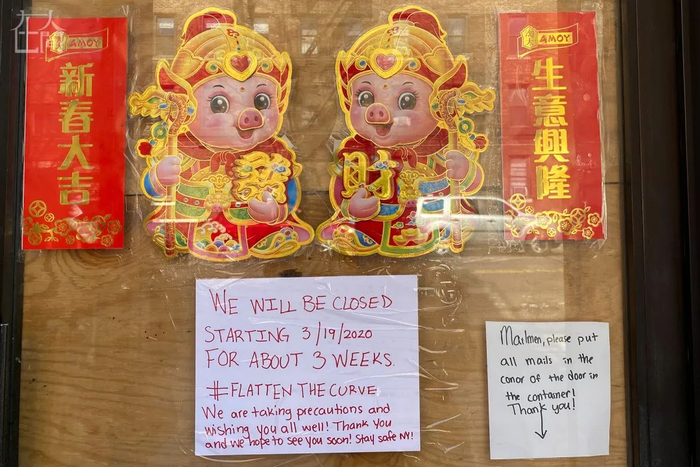 AMOY
新春大吉
發
財
AMOY
生意興隆
WE WILL BE CLOSED
STARTING 3/19/2020
FOR ABOUT 3 WEEKS.
#FLATTEN THE CURVE
We are taking precautions and
wishing you all well! Thank you
and we hope to see you soon! Stay safe NY!
Mailmen, please put
all mails in the
conor of the door in
the container!
Thank you!